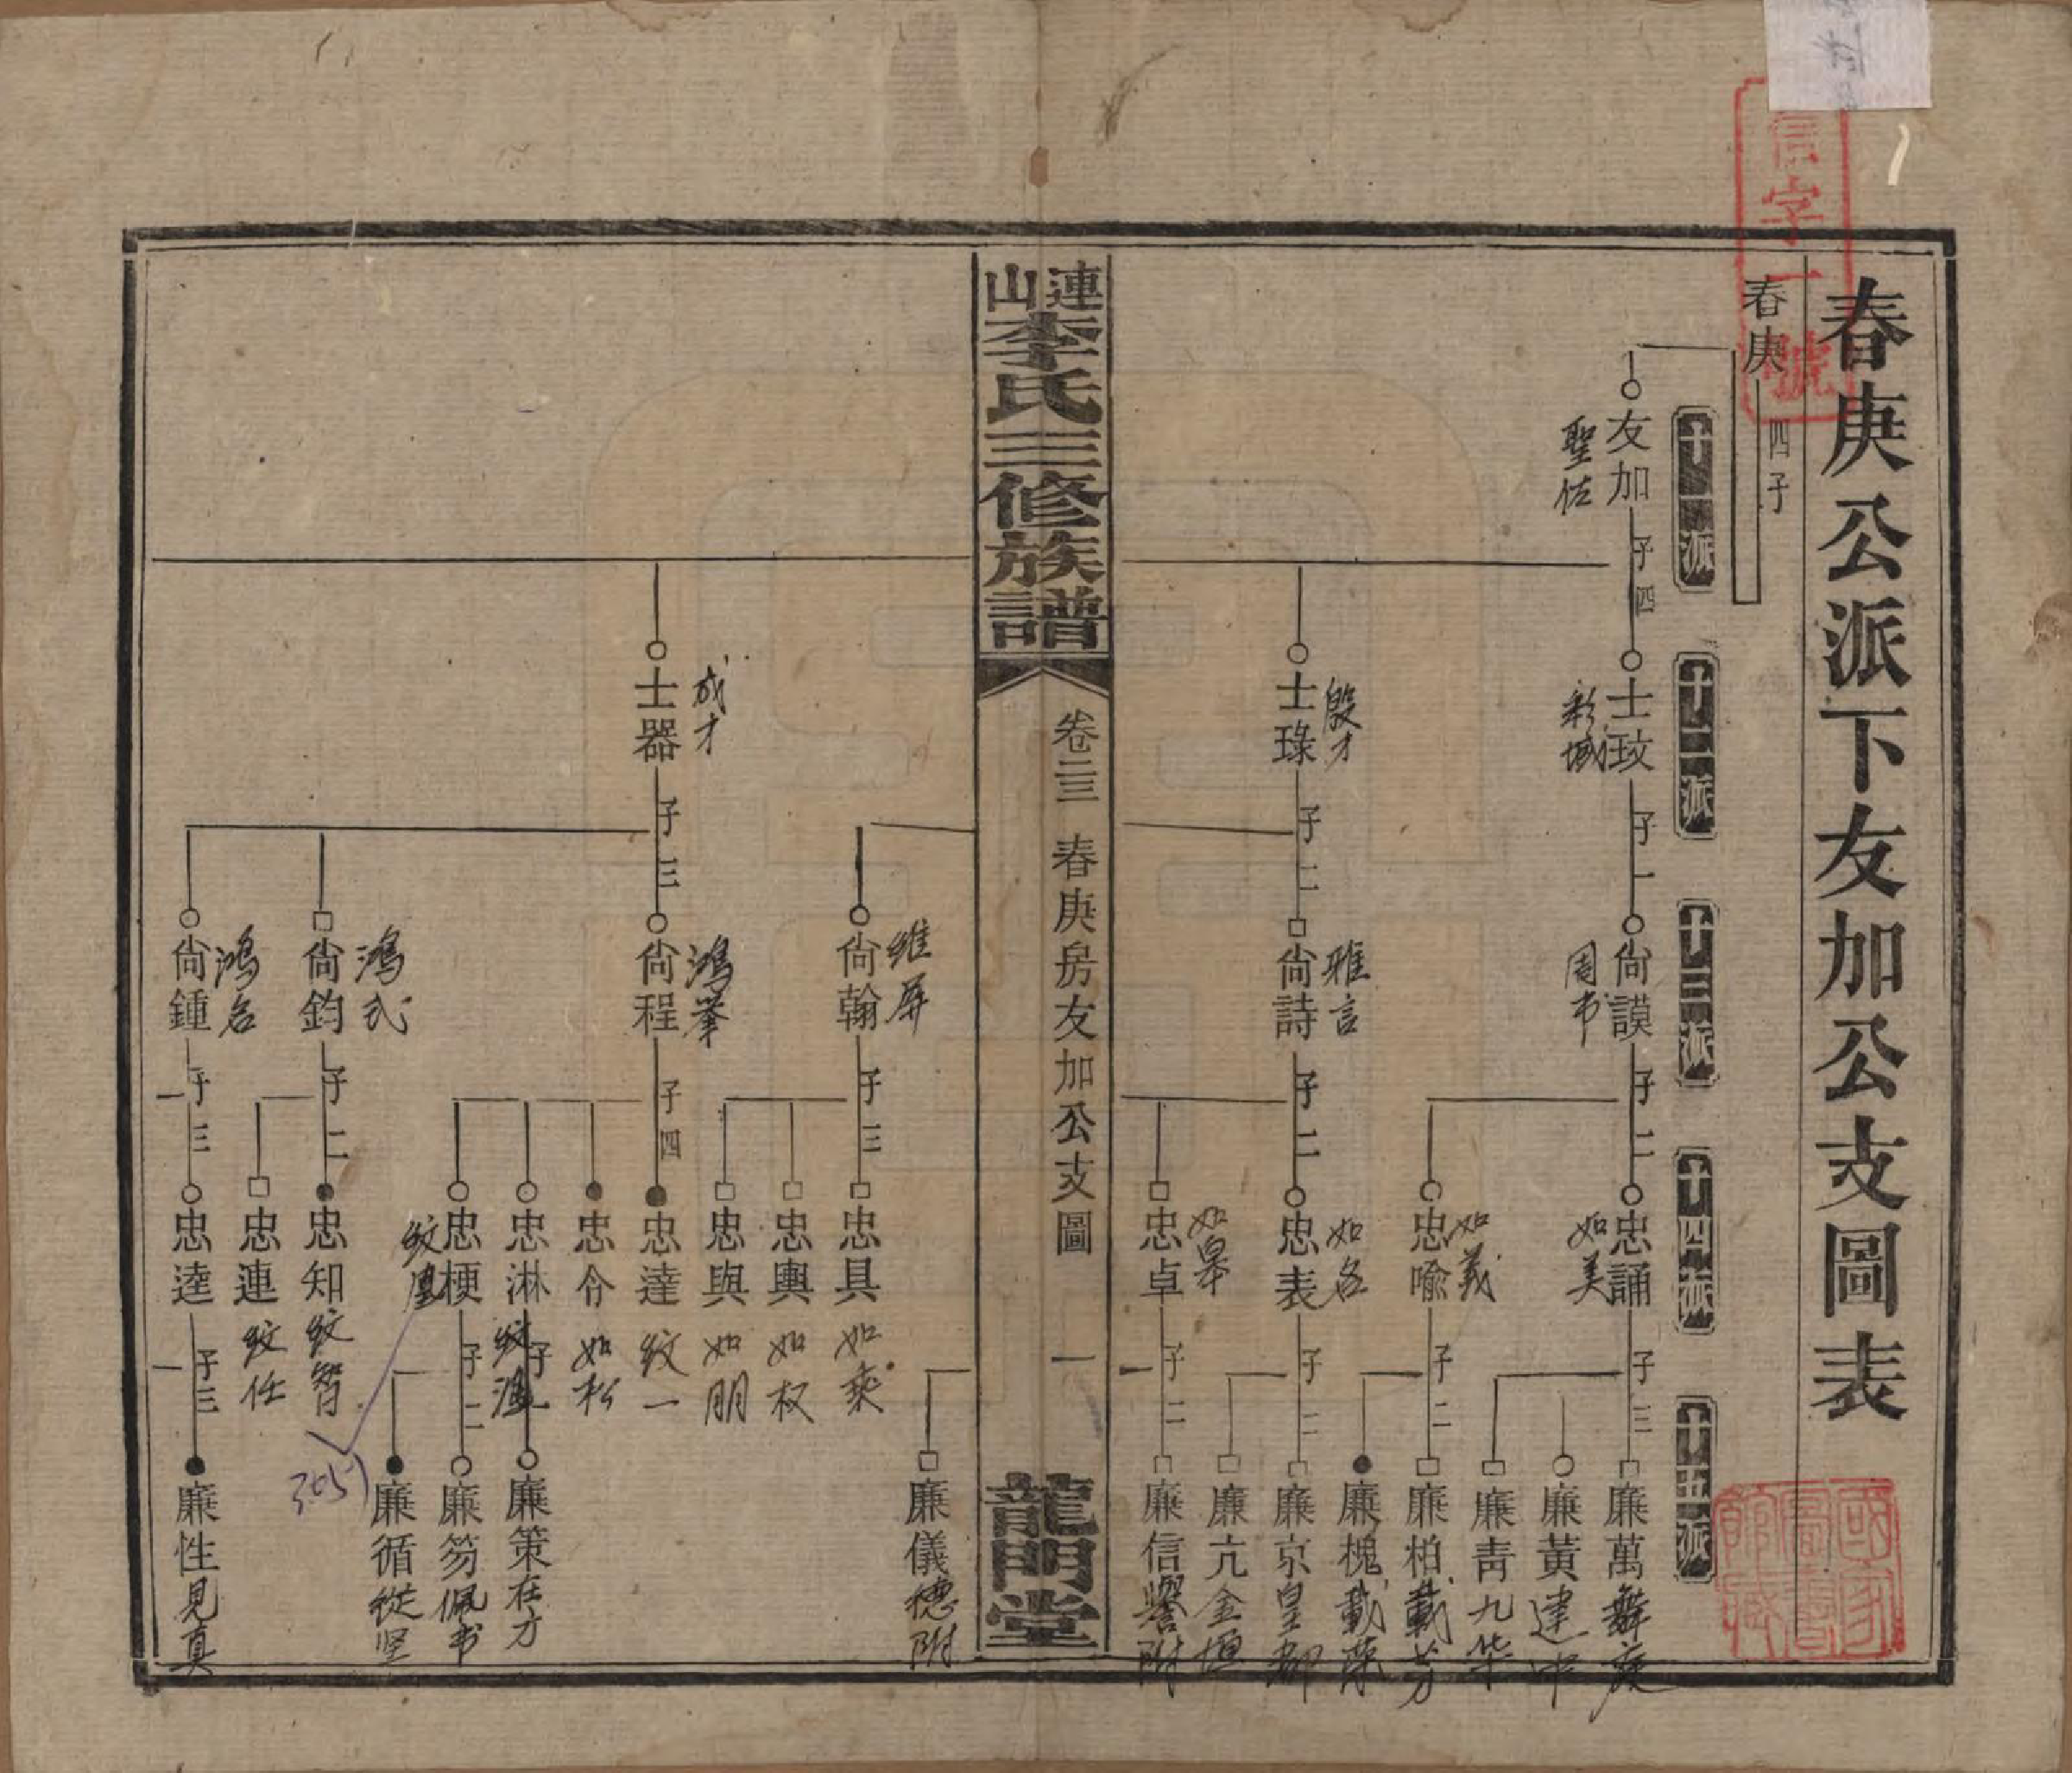 春庚公派下友加公支圖表
信字一號
春庚
四子
十一派
十二派
十三派
十四派
十五派
友加 子四
聖佐
士玟 子一
彩域
尙謨 子二
周韦
忠誦 子三
如美
廉萬 舞庭
廉黃 建中
廉靑 九华
忠喩 子二
如義
廉柏 載芳
廉槐 載蔭
士琭 子二
殷才
尙詩 子二
雅言
忠表 子二
如名
廉京 皇都
廉亢 金垣
忠卓 子二
如皋
廉信 譽附
連山李氏三修族譜
卷二三 春庚房友加公支圖
一
龍門堂
廉儀 穗附
尙翰 子三
維屏
忠具 如乘
忠輿 如权
忠與 如朋
士器 子三
成才
尙程 子四
鴻举
忠達 纹一
忠今 如松
忠淋 子一
廉策 在才
忠梗 子二
廉笏 佩书
廉循 從坚
尙鈞 子二
鴻氏
忠知 纹智
忠連 纹任
尙鍾 子三
鴻名
忠逵 子三
廉性 見真